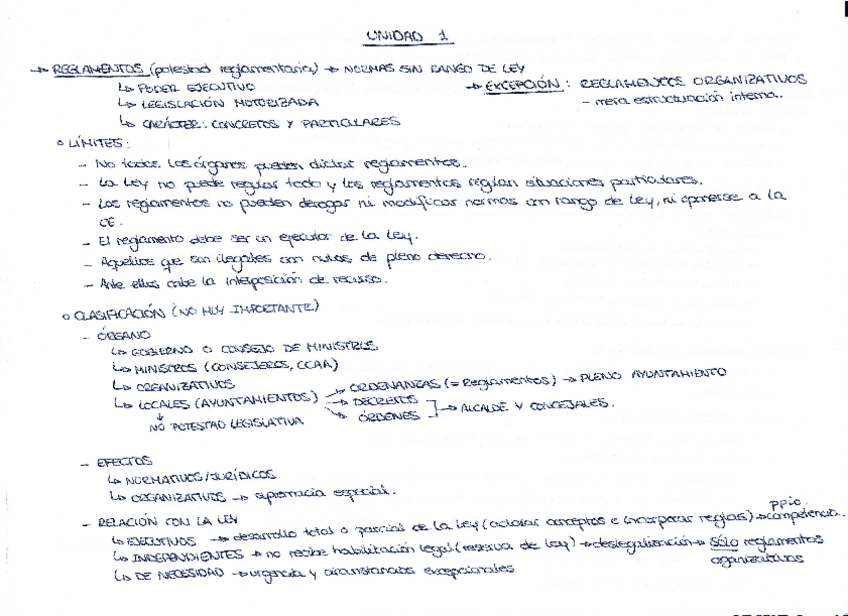 UNIDAD 1
→ REGLAMENTOS (potestad reglamentaria) → NORMAS SIN RANGO DE LEY
↳ PODER EJECUTIVO → EXCEPCIÓN: REGLAMENTOS ORGANIZATIVOS
↳ LEGISLACIÓN MOTORIZADA - mera estructuración interna.
↳ CARÁCTER: CONCRETOS Y PARTICULARES
○ LÍMITES:
- No todos los órganos pueden dictar reglamentos.
- La Ley no puede regular todo y los reglamentos regulan situaciones particulares.
- Los reglamentos no pueden derogar ni modificar normas con rango de Ley, ni oponerse a la
CE.
- El reglamento debe ser un ejecutor de la Ley.
- Aquellos que son ilegales son nulos de pleno derecho.
- Ante ellos cabe la interposición de recurso.
○ CLASIFICACIÓN (NO MUY IMPORTANTE)
- ÓRGANO
↳ GOBIERNO O CONSEJO DE MINISTROS
↳ MINISTROS (CONSEJEROS, CCAA)
↳ ORGANIZATIVOS → ORDENANZAS (= Reglamentos) → PLENO AYUNTAMIENTO
↳ LOCALES (AYUNTAMIENTOS) → DECRETOS
→ ÓRDENES → ALCALDE Y CONCEJALES.
↓
NO POTESTAD LEGISLATIVA
- EFECTOS
↳ NORMATIVOS/JURÍDICOS
↳ ORGANIZATIVOS → supremacía especial.
- RELACIÓN CON LA LEY ppio.
↳ EJECUTIVOS → desarrollo total o parcial de la Ley (aclarar conceptos e incorporar reglas) → competencia.
↳ INDEPENDIENTES → no recibe habilitación legal (reserva de Ley) → deslegalización → SÓLO reglamentos
organizativos
↳ DE NECESIDAD → urgencia y circunstancias excepcionales